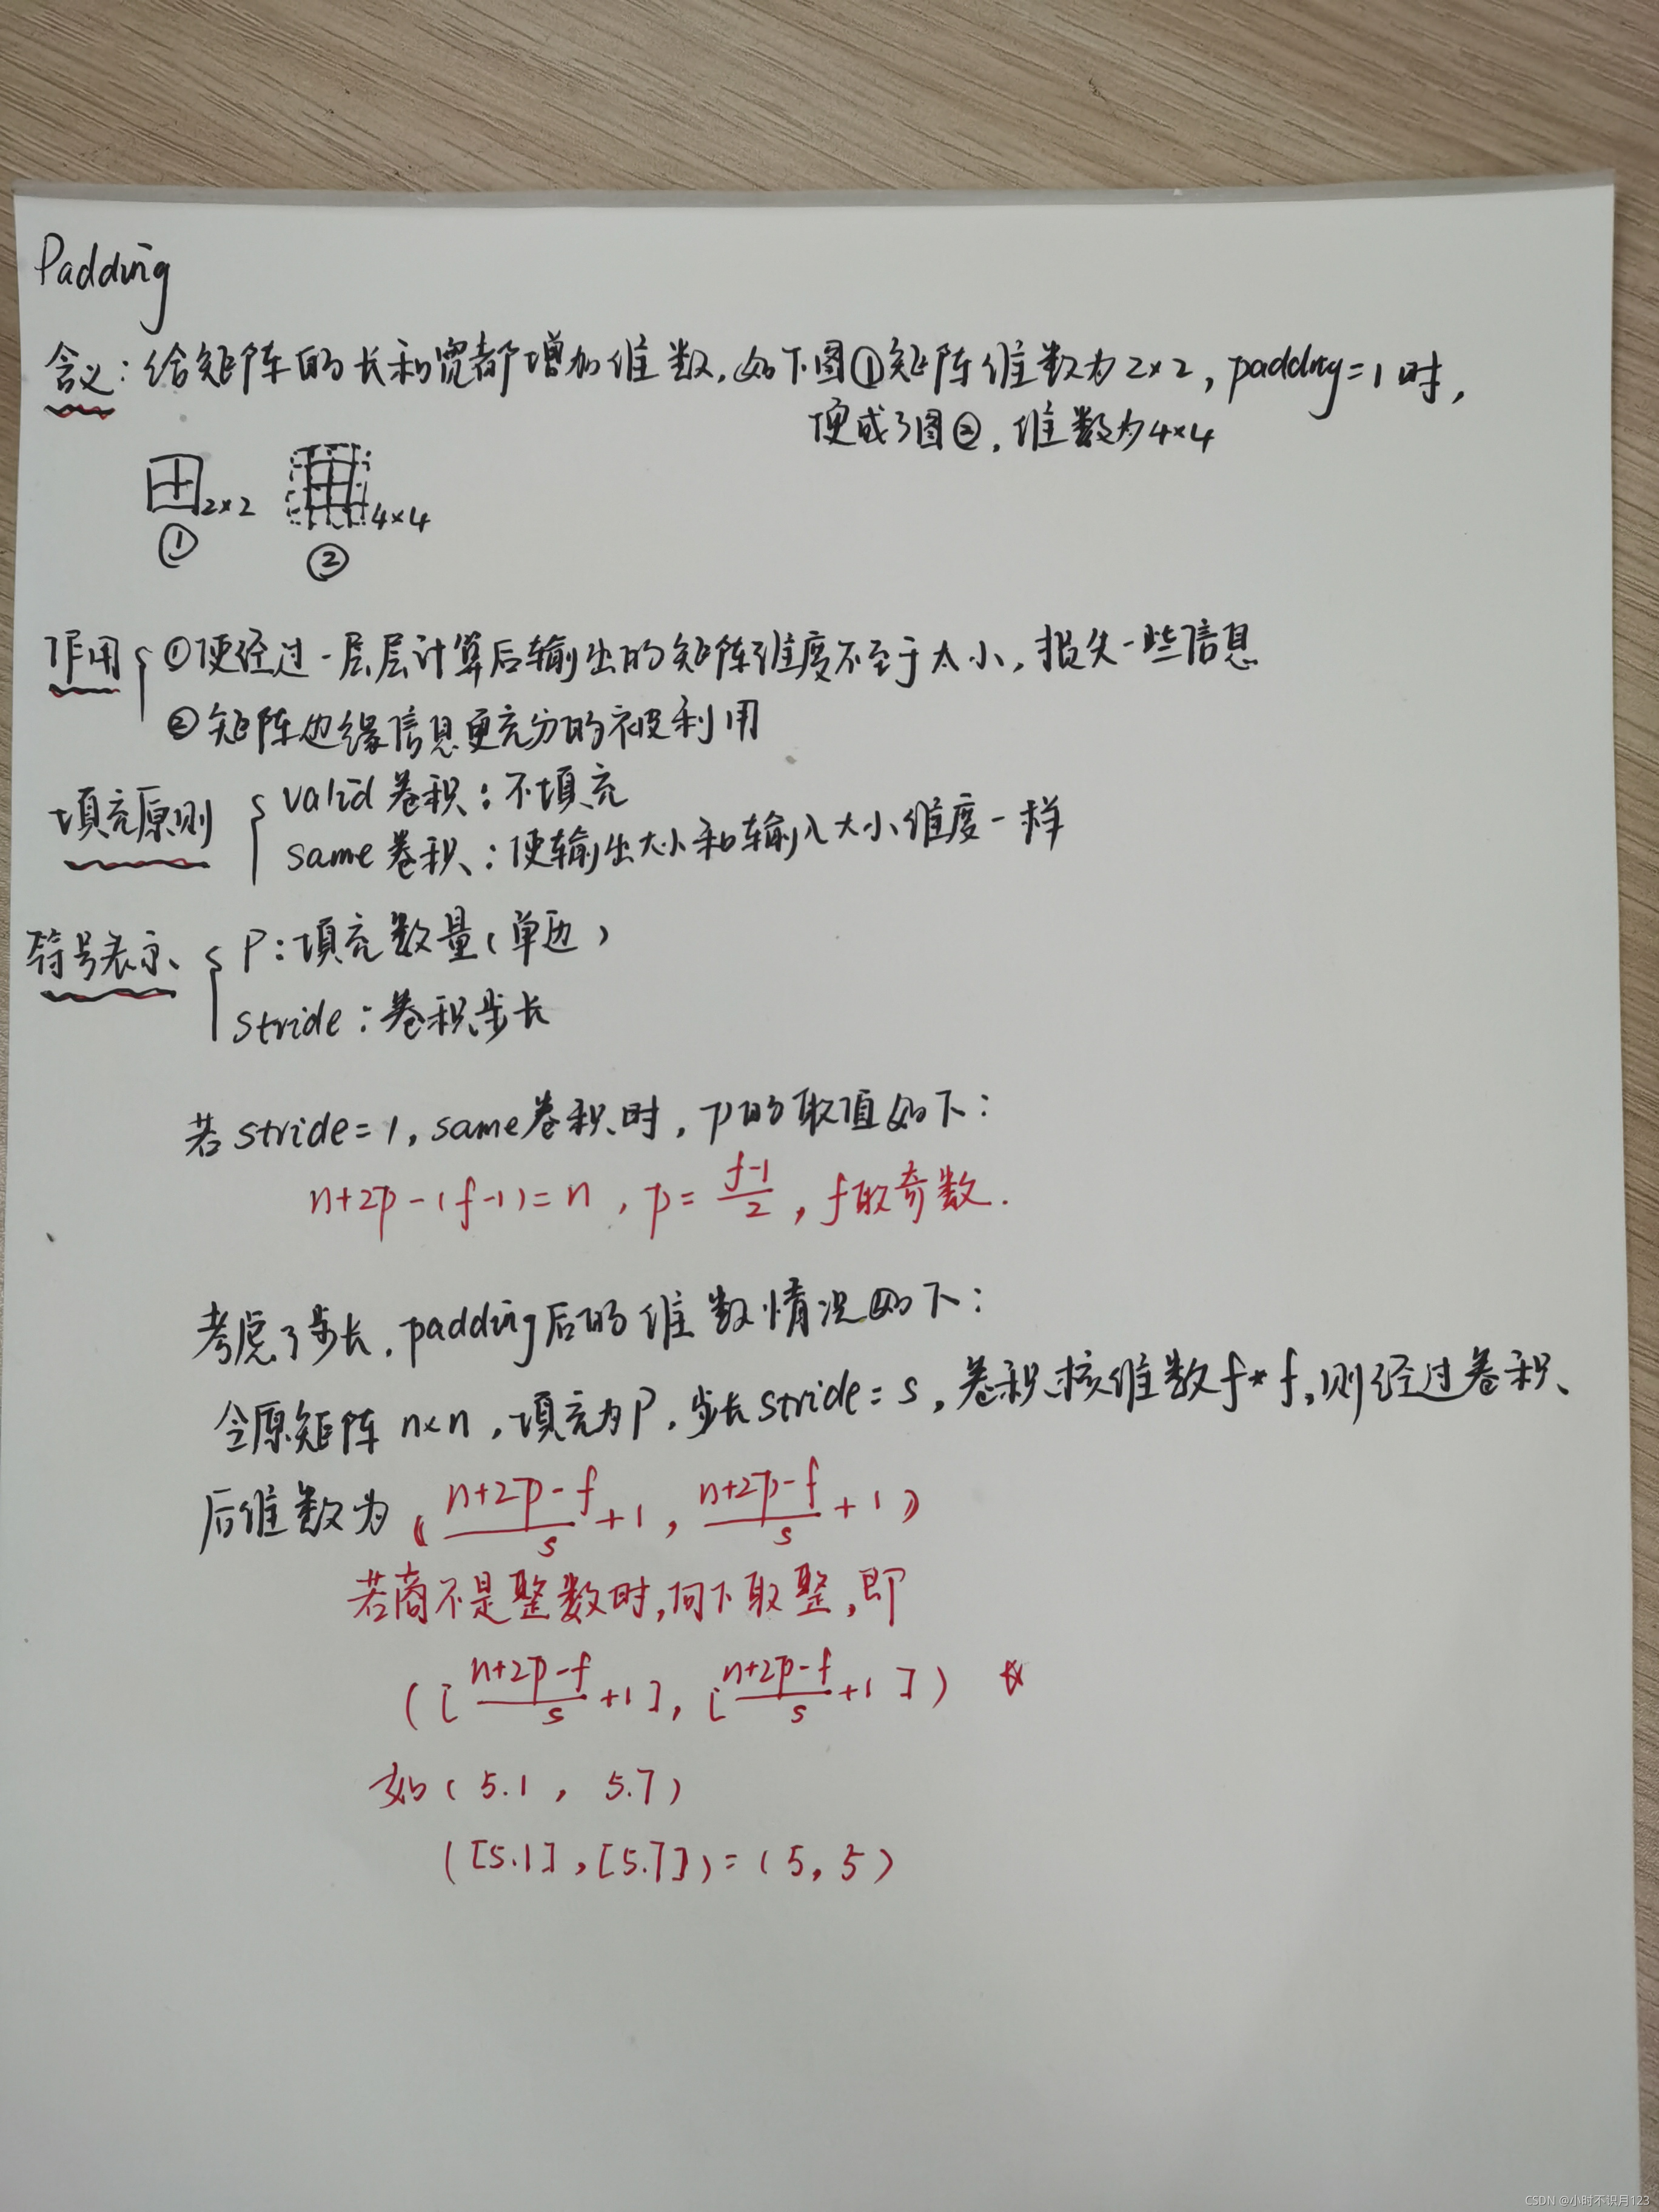 Padding
含义：给矩阵的长和宽都增加维数，如下图①矩阵维数为2×2，padding=1时，
便成了图②，维数为4×4
2×2 4×4
① ②
作用 ①使经过一层层计算后输出的矩阵维度不至于太小，损失一些信息
②矩阵边缘信息更充分的被利用
填充原则 valid卷积：不填充
same卷积：使输出大小和输入大小维度一样
符号表示 P：填充数量（单边）
stride：卷积步长
若stride=1，same卷积时，p的取值如下：
n+2p-(f-1)=n，p=\frac{f-1}{2}，f取奇数.
考虑了步长，padding后的维数情况如下：
令原矩阵n×n，填充为P，步长stride=s，卷积核维数f*f，则经过卷积
后维数为(\frac{n+2p-f}{s}+1，\frac{n+2p-f}{s}+1)
若商不是整数时，向下取整，即
([\frac{n+2p-f}{s}+1]，[\frac{n+2p-f}{s}+1]) ☆
如(5.1，5.7)
([5.1]，[5.7])=(5，5)
CSDN @小时不识月123